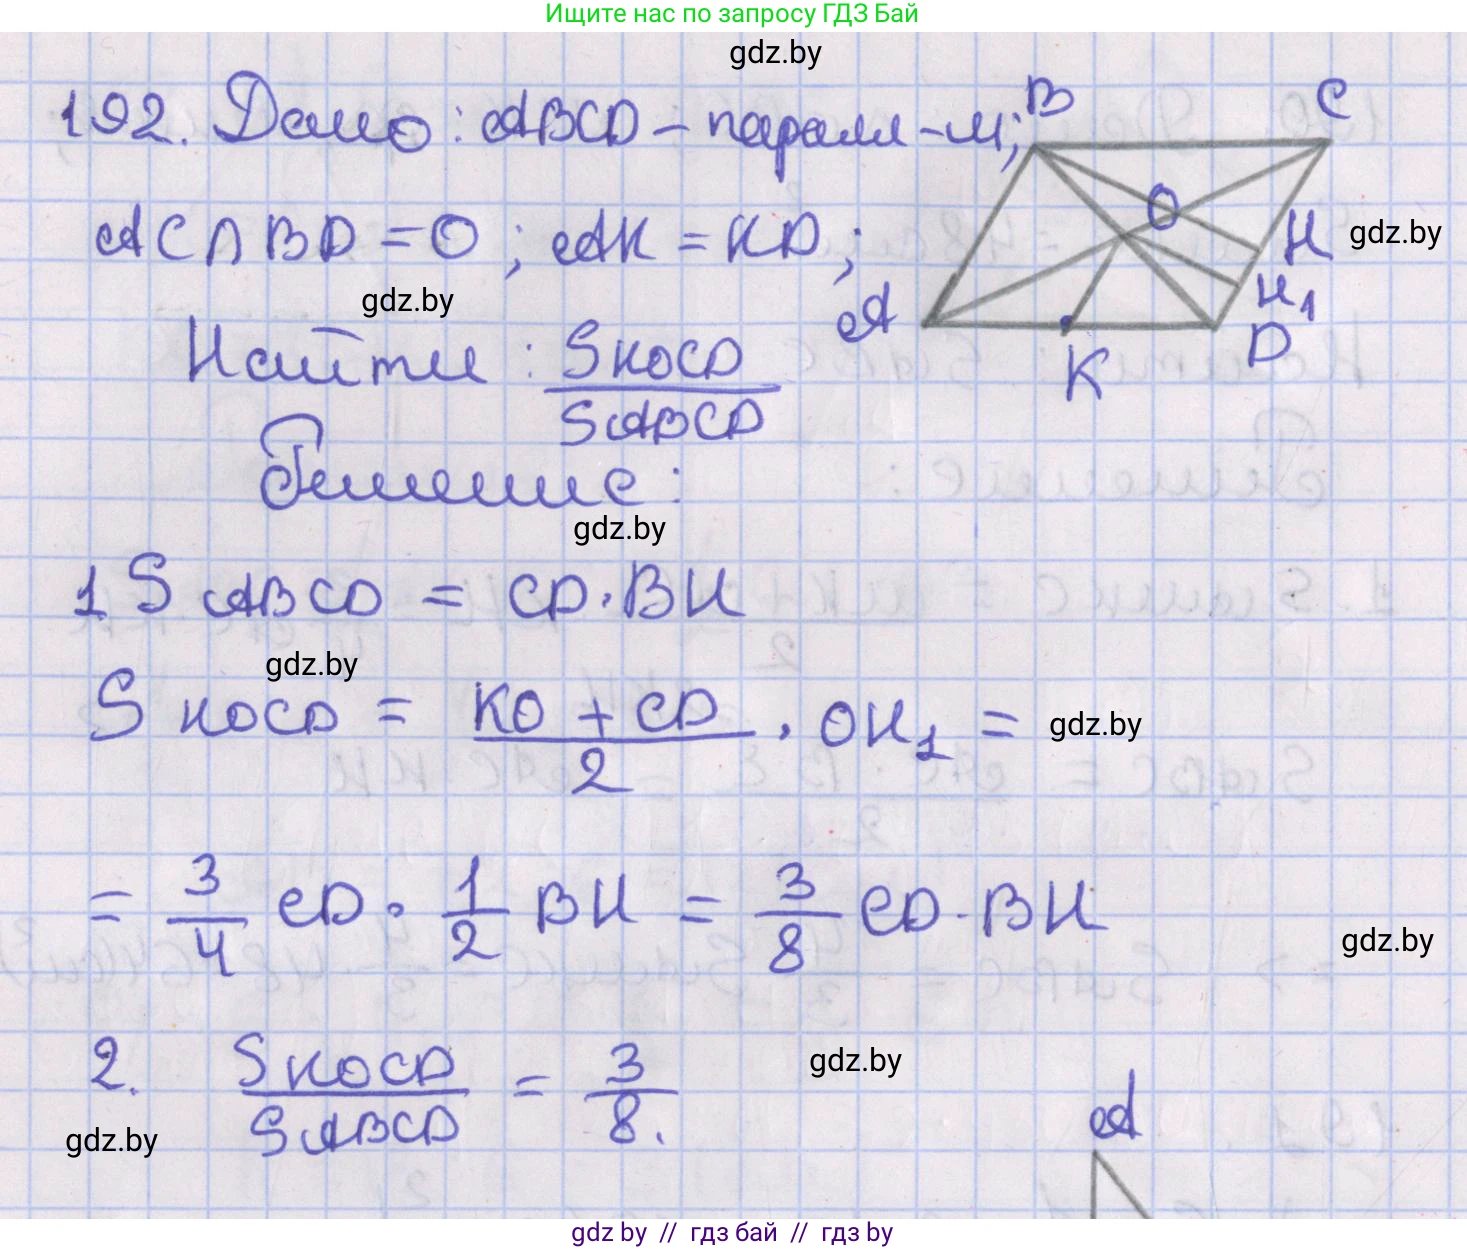 Ищите нас по запросу ГДЗ Бай
gdz.by
192. Дано: ABCD - паралл-м;
AC ∩ BD = O; AK = KD;
gdz.by
gdz.by
B C
O H
H₁
A K D
Найти: SKOCD / SABCD
Решение:
gdz.by
1 SABCD = CD · BH
gdz.by
SKOCD = (KO + CD) / 2 · OH₁ =
gdz.by
= 3/4 CD · 1/2 BH = 3/8 CD · BH
gdz.by
2. SKOCD / SABCD = 3/8.
gdz.by
gdz.by
A
gdz by // гдз бай // гдз by